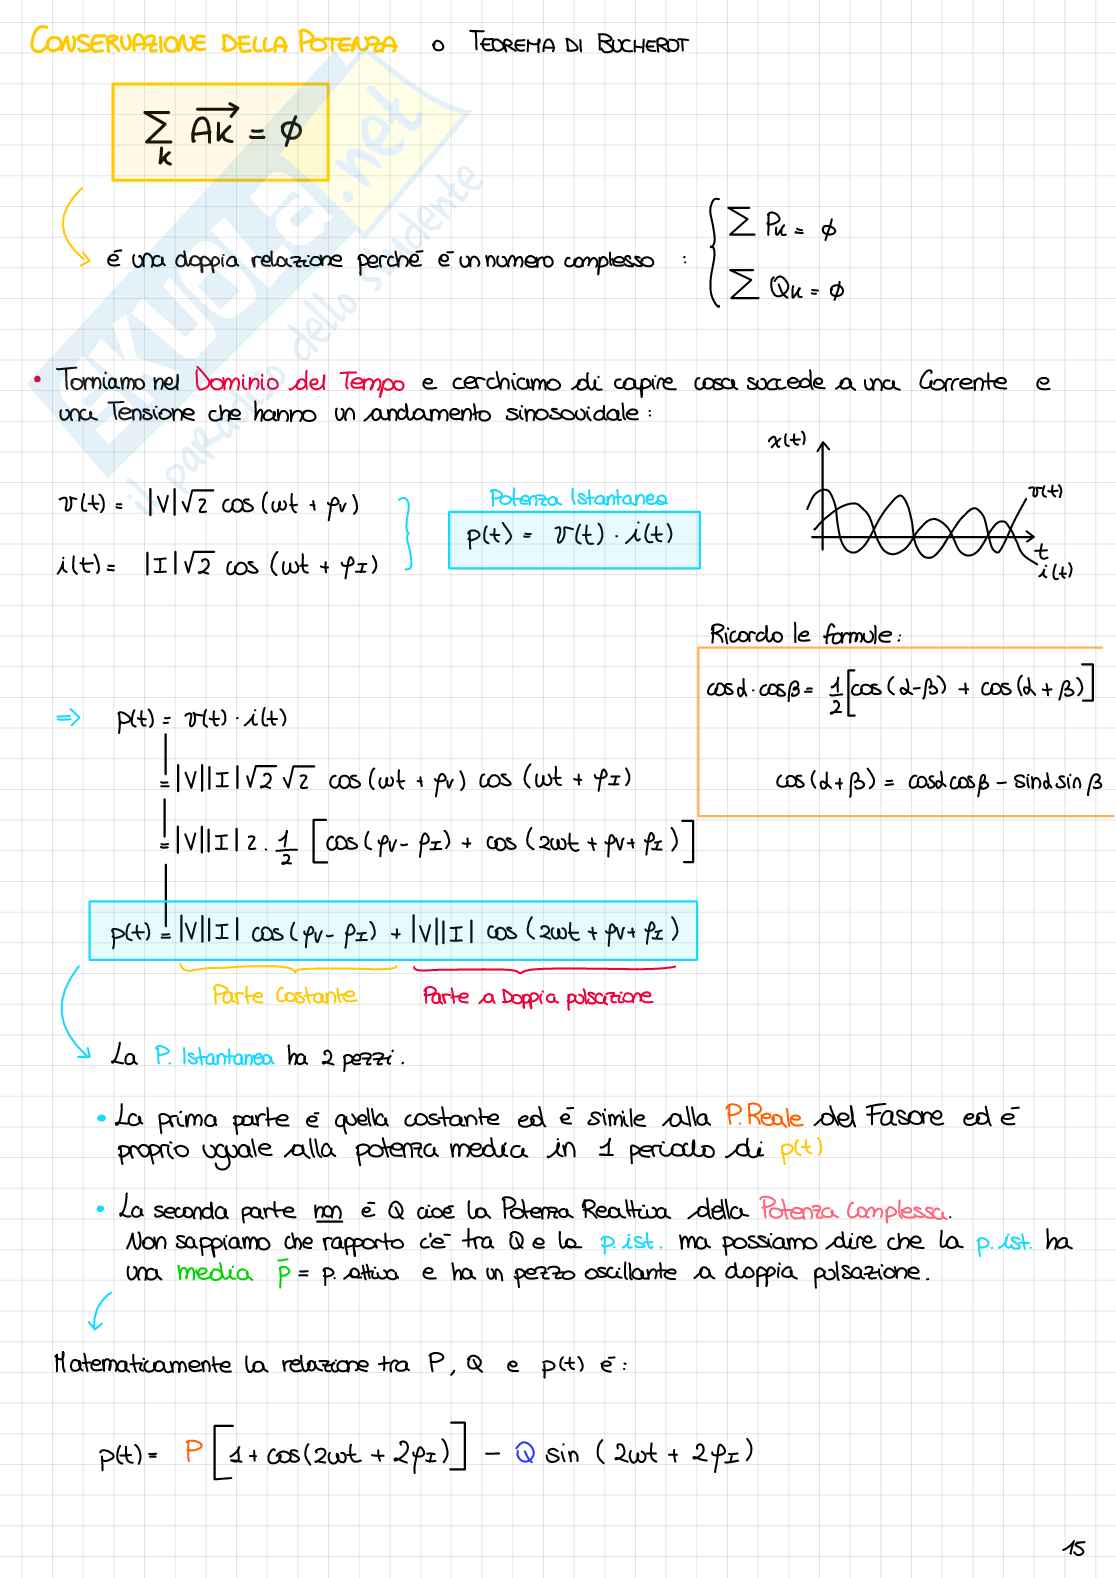 CONSERVAZIONE DELLA POTENZA o TEOREMA DI BUCHEROT
∑ₖ A⃗k = ϕ
é una doppia relazione perché é un numero complesso :
∑ Pk = ϕ
∑ Qk = ϕ
• Torniamo nel Dominio del Tempo e cerchiamo di capire cosa succede a una Corrente e
una Tensione che hanno un andamento sinosouidale :
x(t)
v(t)
t
i(t)
v(t) = |V|√2 cos (ωt + φv)
i(t) = |I|√2 cos (ωt + φI)
Potenza Istantanea
p(t) = v(t) · i(t)
Ricordo le formule:
cosα·cosβ = 1/2 [cos(α-β) + cos(α+β)]
cos(α+β) = cosαcosβ - sinαsinβ
⇒ p(t) = v(t) · i(t)
= |V||I|√2√2 cos(ωt + φv) cos (ωt + φI)
= |V||I| 2 · 1/2 [cos(φv - φI) + cos (2ωt + φv + φI)]
p(t) = |V||I| cos(φv - φI) + |V||I| cos (2ωt + φv + φI)
Parte Costante
Parte a Doppia pulsazione
La P. Istantanea ha 2 pezzi.
• La prima parte é quella costante ed é simile alla P.Reale del Fasore ed é
proprio uguale alla potenza media in 1 periodo di p(t)
• La seconda parte non é Q cioé la Potenza Reattiva della Potenza Complessa.
Non sappiamo che rapporto c'é tra Q e la p.ist. ma possiamo dire che la p.ist. ha
una media p̄ = p. attiva e ha un pezzo oscillante a doppia pulsazione.
Matematicamente la relazione tra P, Q e p(t) é:
p(t) = P [1 + cos(2ωt + 2φI)] - Q sin (2ωt + 2φI)
15
SKUOLA.net
il paradiso dello studente